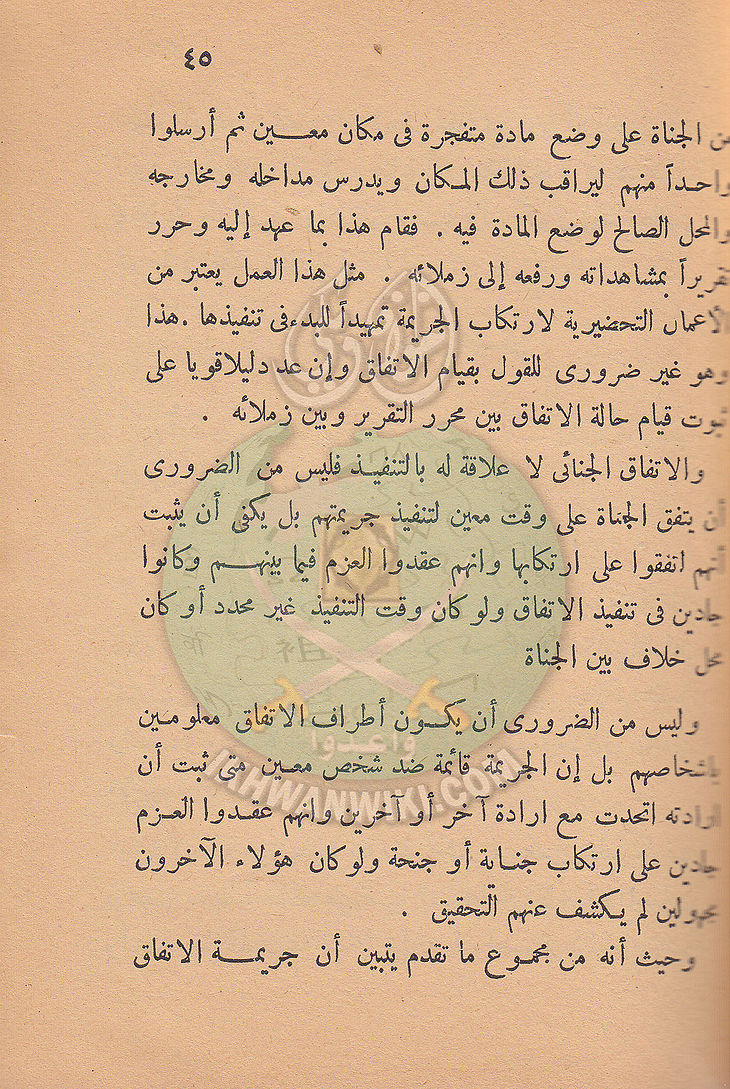 ٤٥
من الجناة على وضع مادة متفجرة فى مكان معـــين ثم أرسلوا
واحـداً منهم ليراقب ذلك المـكان ويدرس مداخله ومخارجه
والمحل الصالح لوضع المادة فيه . فقام هذا بما عهد إليه وحرر
تقريراً بمشاهداته ورفعه إلى زملائه . مثل هذا العمل يعتبر من
الأعمال التحضيرية لارتكاب الجريمة تمهيداً للبدء فى تنفيذها . هذا
وهو غير ضرورى للقول بقيام الاتفاق وإن عد دليلا قويا على
ثبوت قيام حالة الاتفاق بين محرر التقرير وبين زملائه .
والاتفاق الجنائى لا علاقة له بالتنفيـذ فليس من الضرورى
أن يتفق الجناة على وقت معين لتنفيذ جريمتهم بل يكفى أن يثبت
أنهم اتفقوا على ارتكابها وانهم عقدوا العزم فيما بينهـــم وكانوا
جادين فى تنفيذ الاتفاق ولو كان وقت التنفيذ غير محدد أو كان
محل خلاف بين الجناة
وليس من الضرورى أن يكـــون أطراف الاتفاق معلومـين
بأشخاصهم بل إن الجريمة قائمة ضد شخص معـين متى ثبت أن
ارادته اتحدت مع ارادة آخر أو آخرين وانهم عقـدوا العـزم
جادين على ارتكاب جنـاية أو جنحة ولو كان هؤلاء الآخرون
مجهولين لم يـكشف عنهم التحقيق .
وحيث أنه من مجمـوع ما تقدم يتبين أن جريمـــة الاتفاق
وأعدوا
IKHWANWIKI.COM